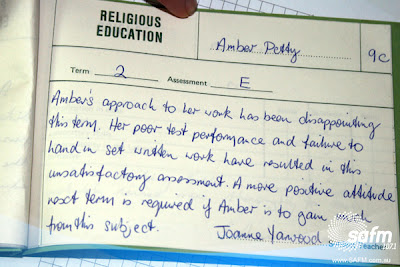 RELIGIOUS
EDUCATION
Amber Petty
9C
Term 2 Assessment E
Amber's approach to her work has been disappointing
this term. Her poor test performance and failure to
hand in set written work have resulted in this
unsatisfactory assessment. A more positive attitude
next term is required if Amber is to gain much
from this subject.
Joanne Yarwood
Teacher
safm
www.SAFM.com.au